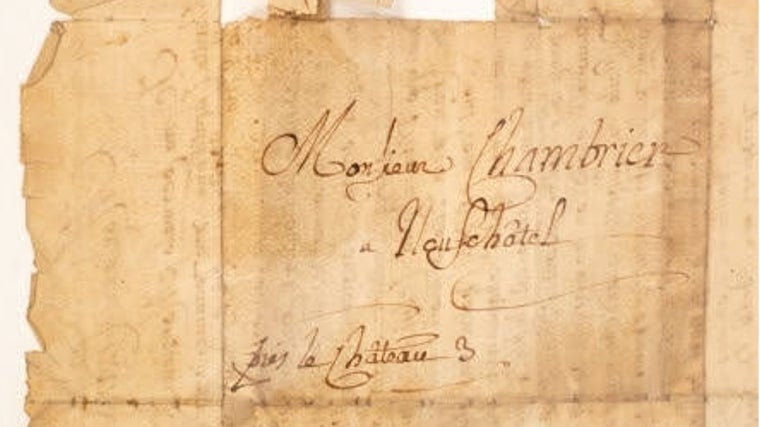 Monsieur Chambrier
a Neufchâtel
près le Château 3